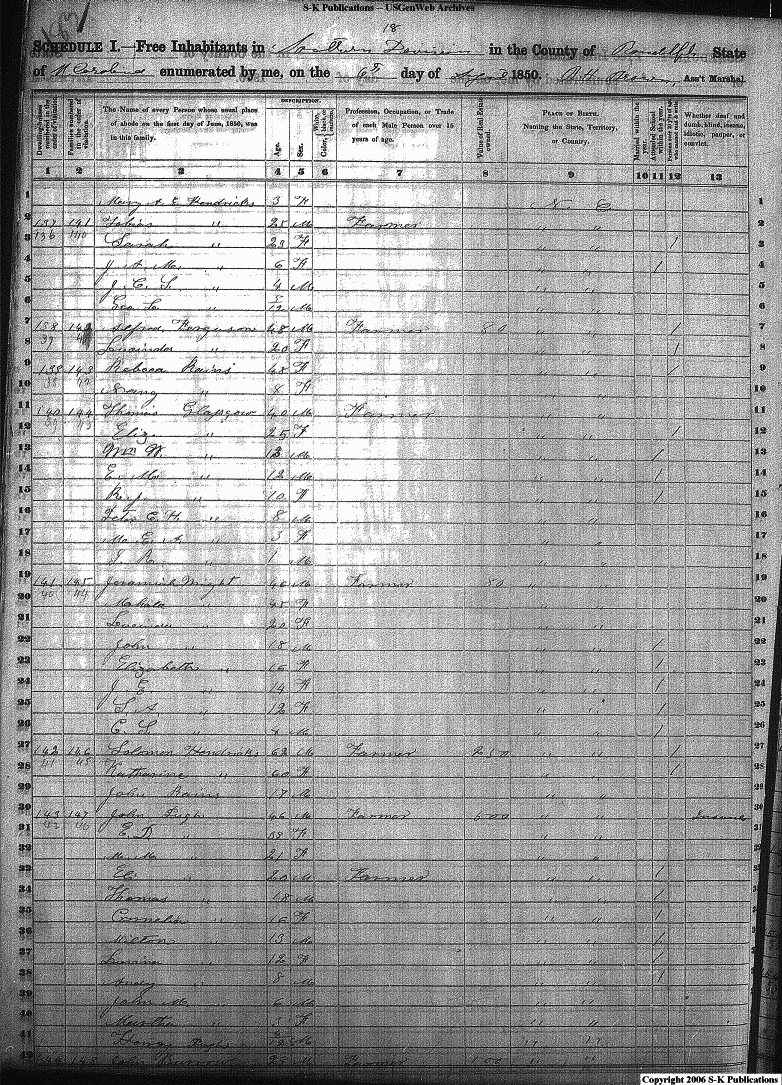 S-K Publications – USGenWeb Archives
187
18
SCHEDULE I.—Free Inhabitants in Southern Division in the County of Randolph State
of N Carolina enumerated by me, on the 6th day of 1850. Brown Ass't Marshal.
DESCRIPTION.
Dwelling-houses numbered in the order of visitation.
Families numbered in the order of visitation.
The Name of every Person whose usual place of abode on the first day of June, 1850, was in this family.
Age.
Sex.
White, black, or mulatto.
Color,
Profession, Occupation, or Trade of each Male Person over 15 years of age.
Value of Real Estate owned.
PLACE OF BIRTH. Naming the State, Territory, or Country.
Married within the year.
Attended School within the year.
Persons over 20 y'rs of age who cannot read & write.
Whether deaf and dumb, blind, insane, idiotic, pauper, or convict.
1 2 3 4 5 6 7 8 9 10 11 12 13
1 Mary A. E. Hendricks 3 F N C 1
2 137 141 Tobias " 25 M Farmer " " 2
3 136 140 Sarah " 23 F " " / 3
4 J. A. M. " 6 F " " / 4
5 J. C. S. " 4 M " " 5
6 Geo. " 5/12 M " " 6
7 138 Alfred Ferguson 48 M Farmer 80 " " / 7
8 " 20 F " " / 8
9 143 Rebecca Rains 48 F " " / 9
10 Nancy " F " " 10
11 140 144 Thomas Glasgow 40 M Farmer " " 11
12 Eliz. " 25 F " " / 12
13 Wm W. " 13 M " " / 13
14 E. M. " 12 M " " / 14
15 R. J. " 10 F " " / 15
16 John C. H. " 8 M " " 16
17 M. E. A. " 3 F " " 17
18 " 1 M " " 18
19 141 145 Jeremiah Wright 46 M Farmer 80 " " 19
20 Mahala " 45 F " " 20
21 " 20 F " " 21
22 John " 18 M " " / 22
23 Elizabeth " 16 F " " / 23
24 J. E. " 14 F " " / 24
25 S. A. " 12 F " " / 25
26 C. S. " M " " / 26
27 142 146 Solomon Hendricks 62 M Farmer 250 " " / 27
28 Katharine " 60 F " " / 28
29 John Rains 17 M " " 29
30 143 147 John Pugh 46 M Farmer 600 " " Insane 30
31 E. D. " F " " 31
32 M. M. " 21 F " " 32
33 Eli " 20 M Farmer " " / 33
34 Thomas " 18 M " " / 34
35 Cornelia " 16 F " " / 35
36 Milton " 13 M " " / 36
37 " 12 F " " / 37
38 " 8 M " " / 38
39 John M. " 6 M " " 39
40 Martha " F " " 40
41 Henry Pugh M " " 41
42 144 148 John Burrow 29 M Farmer 100 " " 42
Copyright 2006 S-K Publications